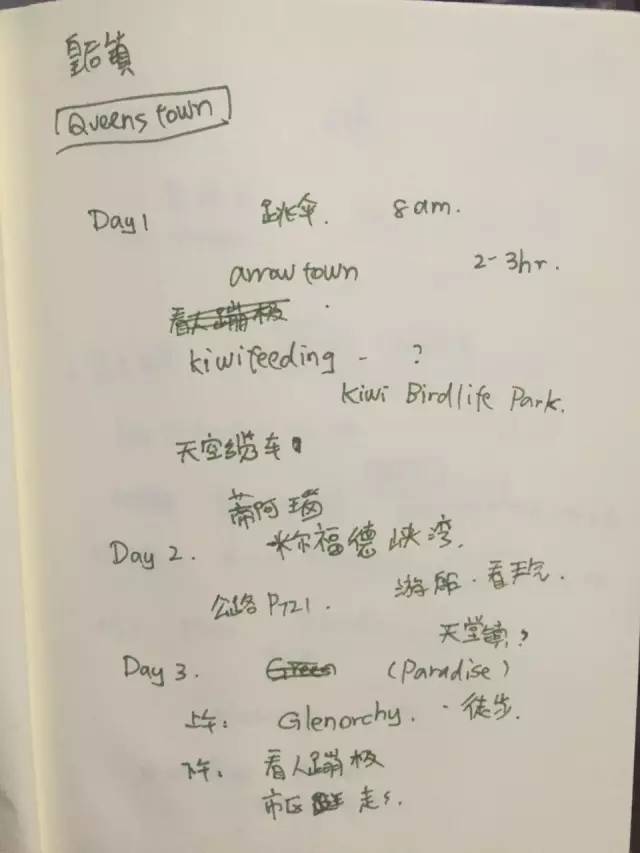 皇后镇
Queenstown
Day 1 跳伞. 8 am.
arrowtown 2-3hr.
看人蹦极
kiwifeeding - ?
Kiwi Birdlife Park.
天空缆车
蒂阿瑙
Day 2. 米尔福德峡湾.
公路 P721. 游船. 看天气.
天堂镇?
Day 3. Green (Paradise)
上午: Glenorchy. · 徒步.
下午: 看人蹦极
市区 走走.